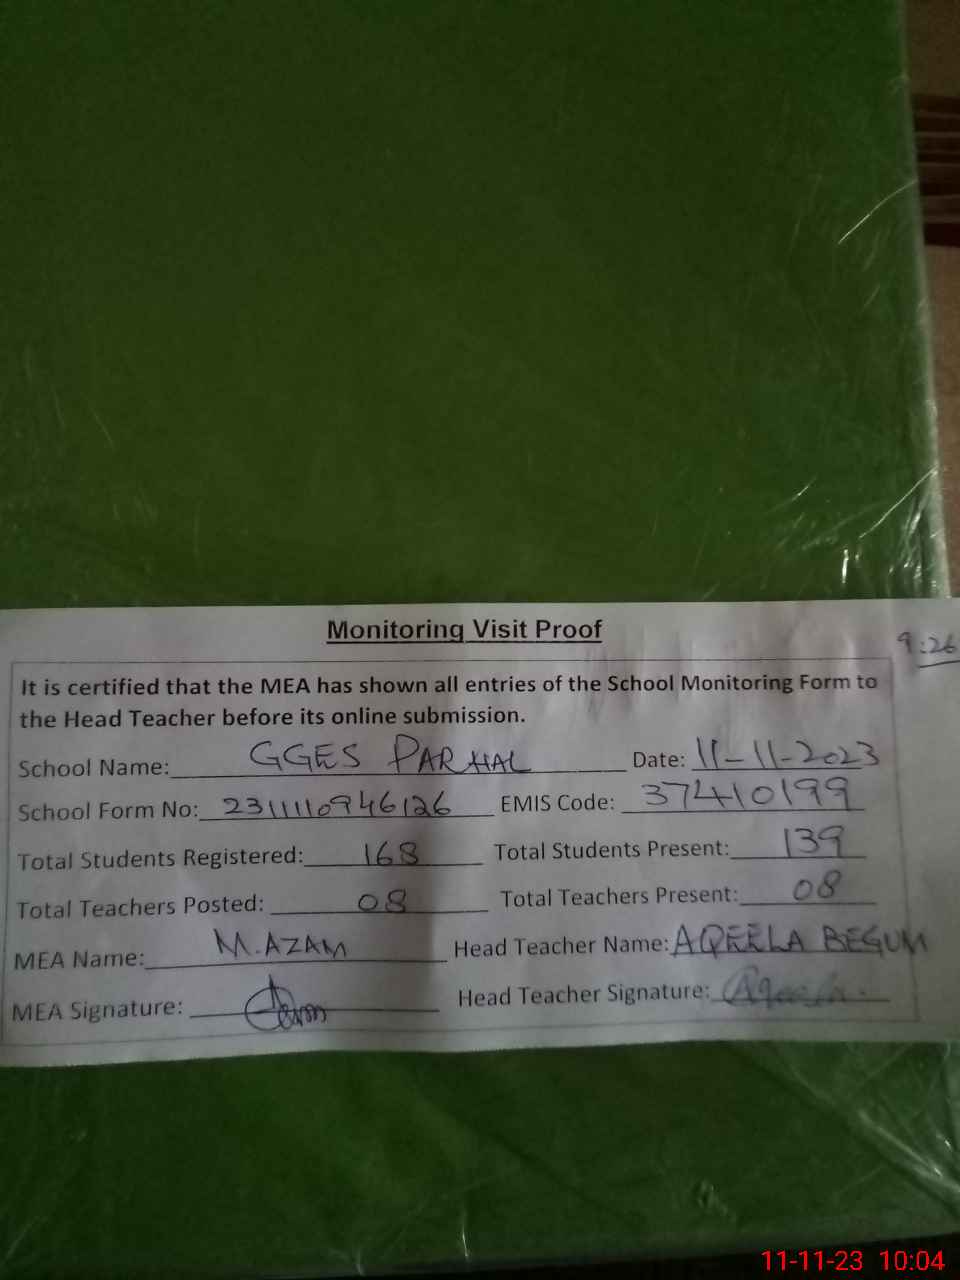 Monitoring Visit Proof
9:26
It is certified that the MEA has shown all entries of the School Monitoring Form to
the Head Teacher before its online submission.
School Name: GGES PARHAL Date: 11-11-2023
School Form No: 2311110946126 EMIS Code: 37410199
Total Students Registered: 168 Total Students Present: 139
Total Teachers Posted: 08 Total Teachers Present: 08
MEA Name: M.AZAM Head Teacher Name: AQEELA BEGUM
MEA Signature: Head Teacher Signature: Aqeela
11-11-23 10:04